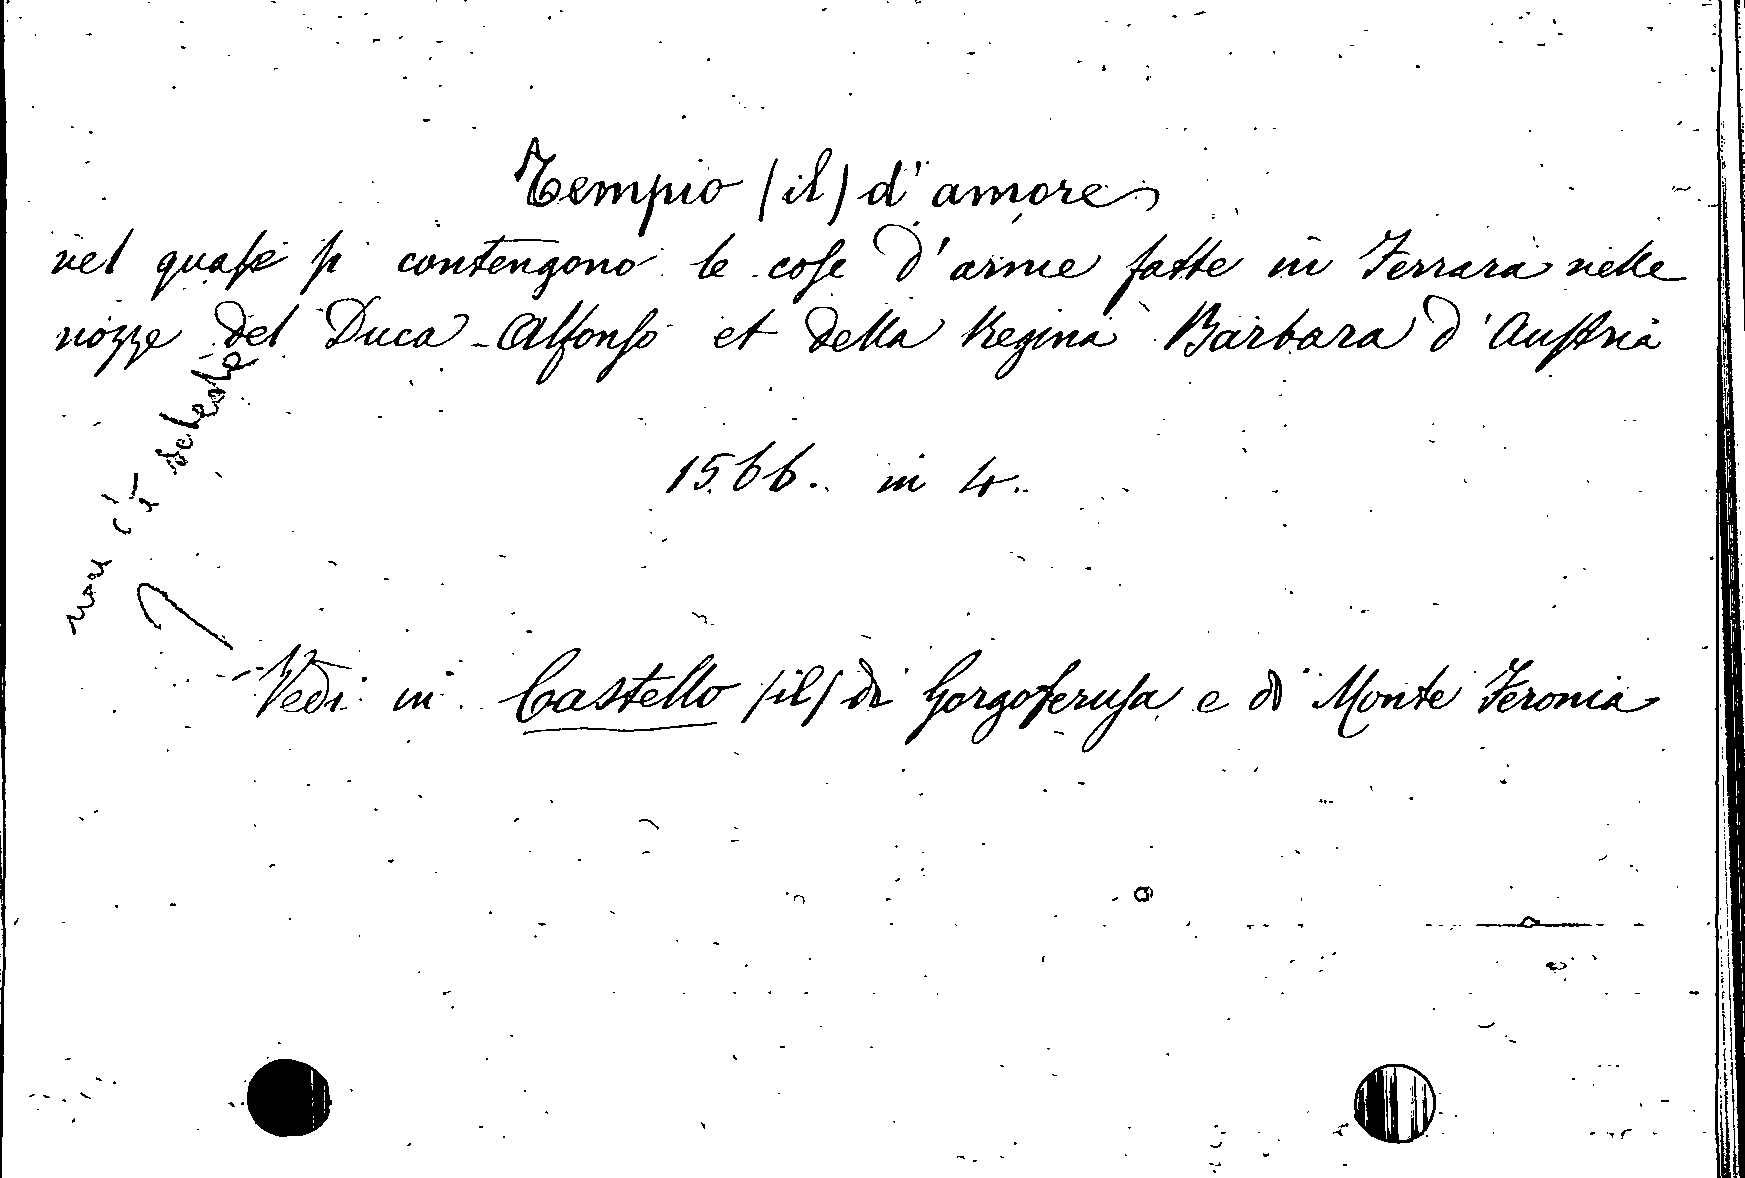 Tempio (il) d'amore
nel quale si contengono le cose d'arme fatte in Ferrara nelle
nozze del Duca Alfonso et della Regina Barbara d'Austria
1566. in 4.
non c'è scheda
Vedi in Castello (il) di Gorgoferusa e di Monte Feronia